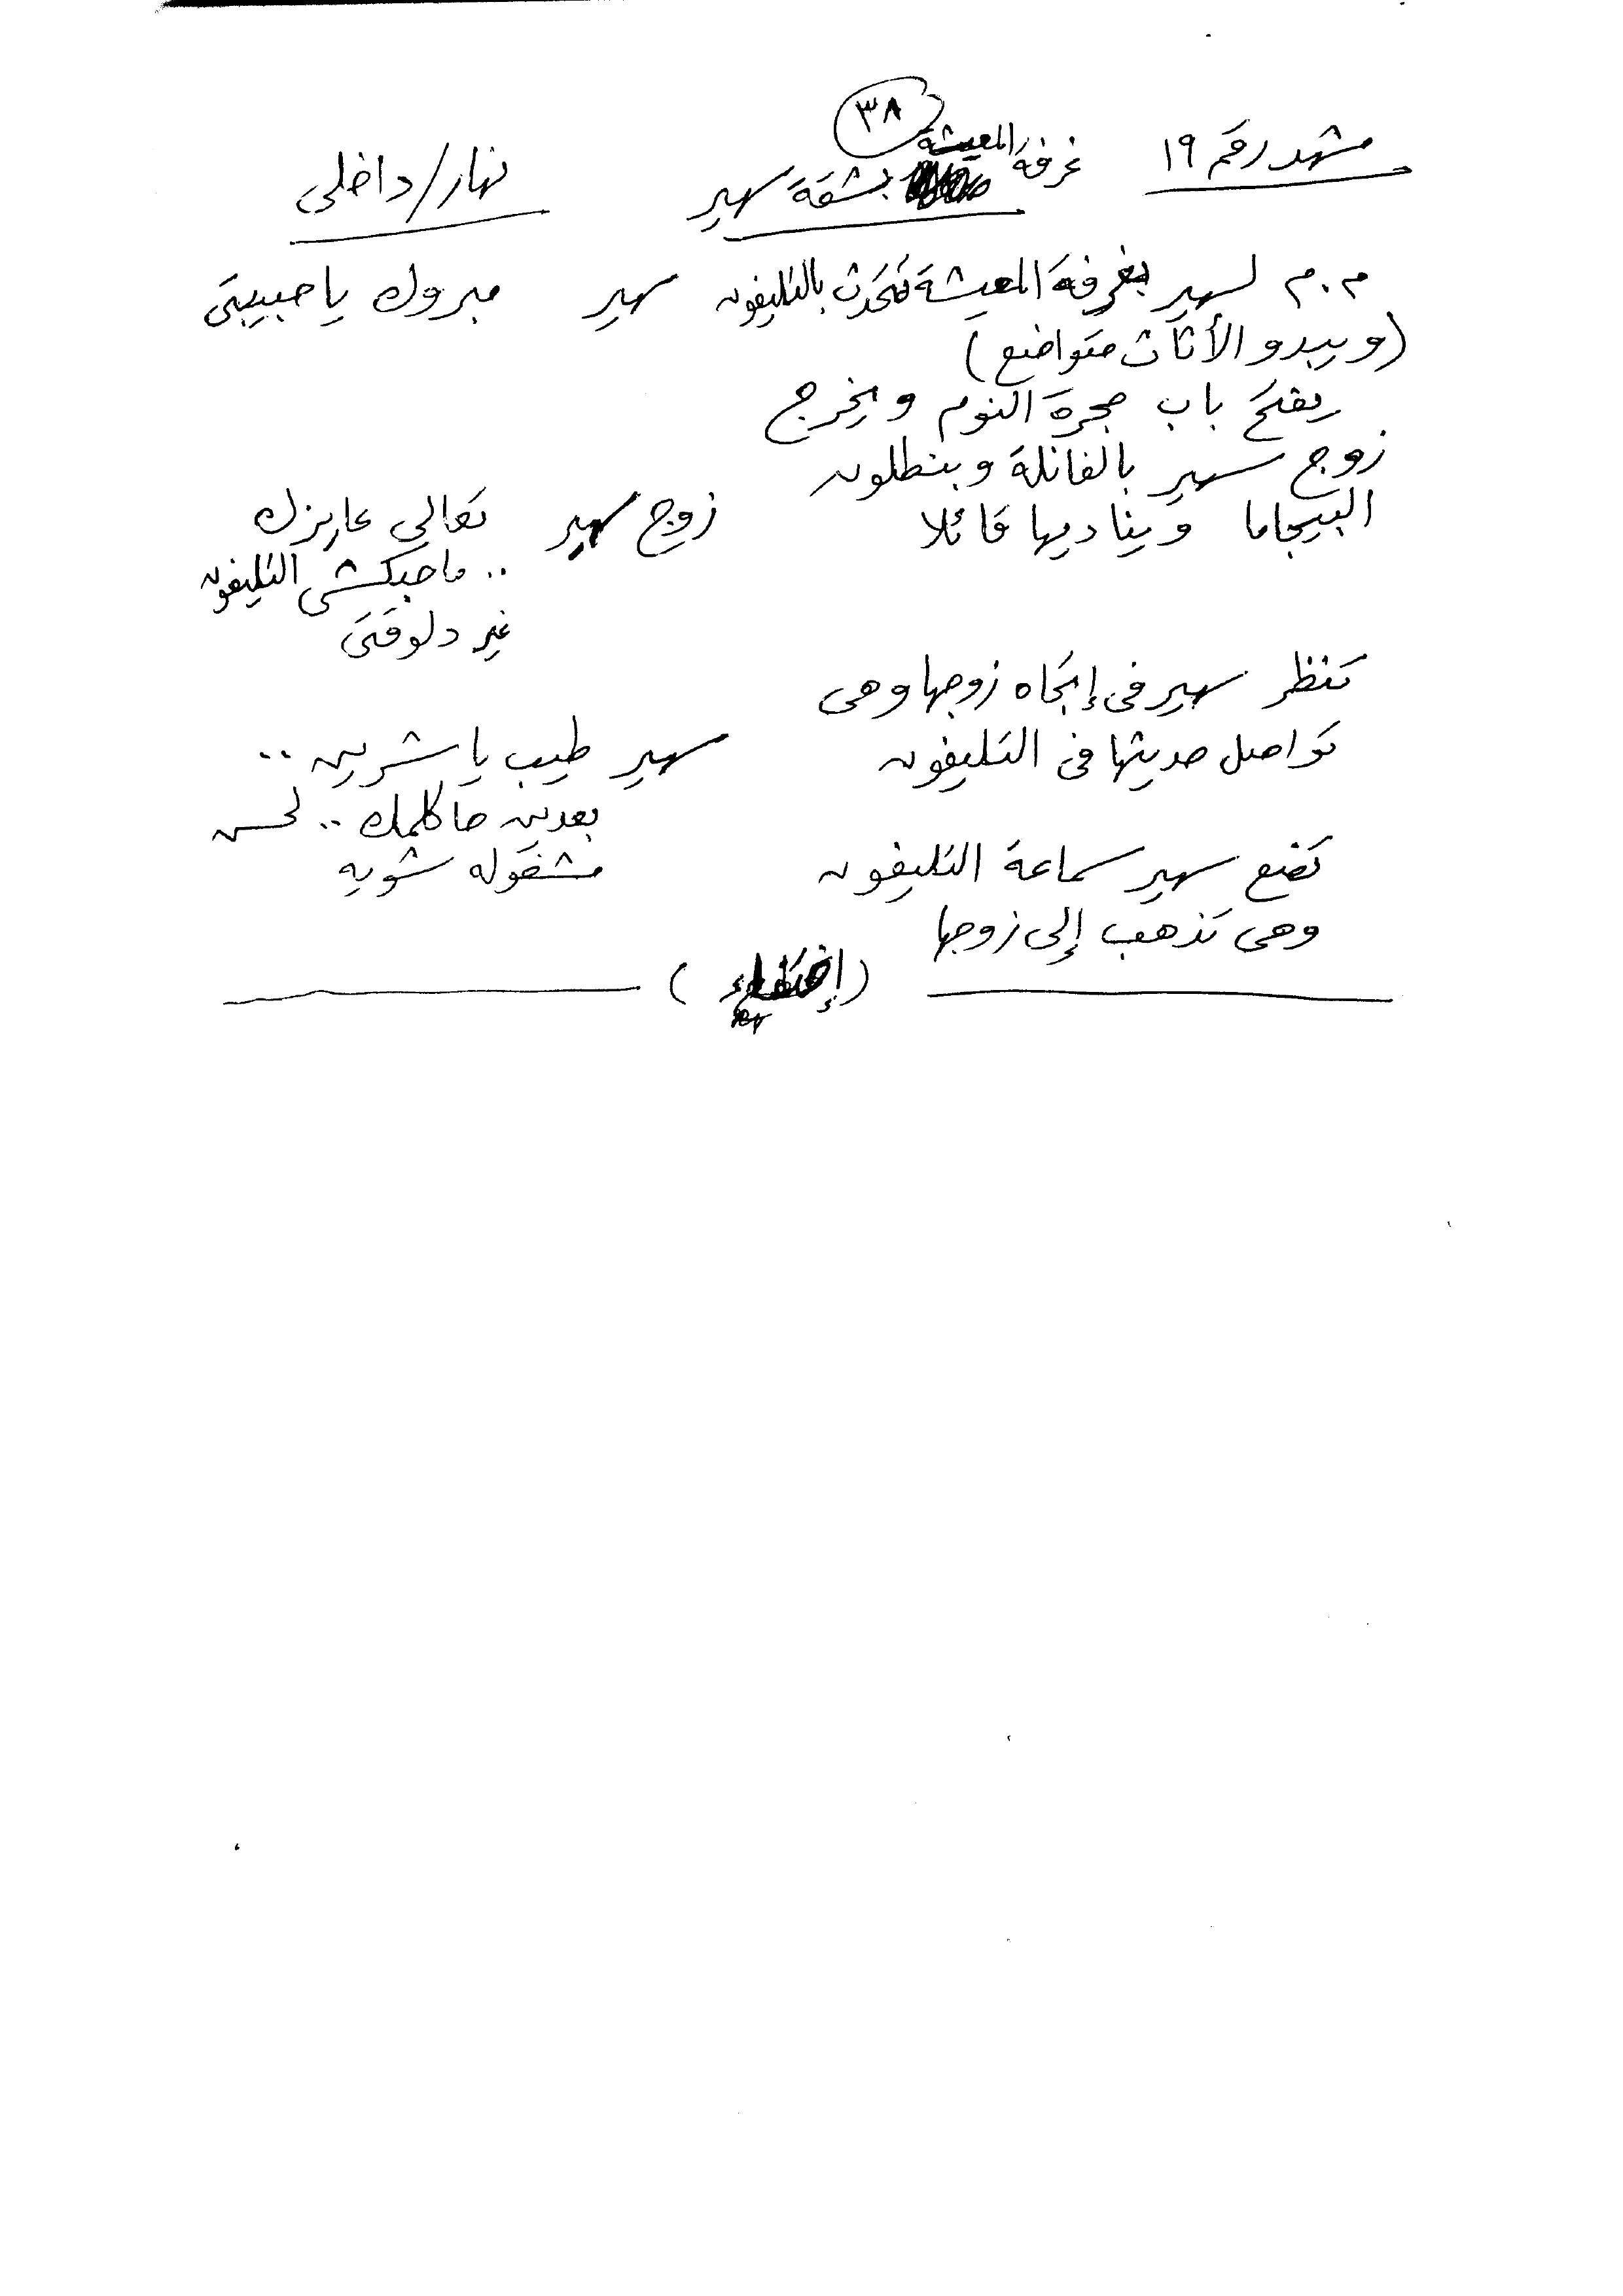 ٣٨
مشهد رقم ١٩ غرفة المعيشة بشقة سهير نهار/داخلى
م.م لسهير بغرفة المعيشة تتحدث بالتليفون سهير مبروك يا حبيبتى
(ويبدو الأثاث متواضع)
يفتح باب حجرة النوم ويخرج
زوج سهير بالفانلة وبنطلون
البيجاما ويناديها قائلا زوج سهير تعالى عايزك
.. ماحبكشى التليفون
غير دلوقتى
تنظر سهير فى إتجاه زوجها وهى
تواصل حديثها فى التليفون سهير طيب يا شرين ..
بعدين حاكلمك .. لحسن
تضع سهير سماعة التليفون مشغوله شويه
وهى تذهب إلى زوجها